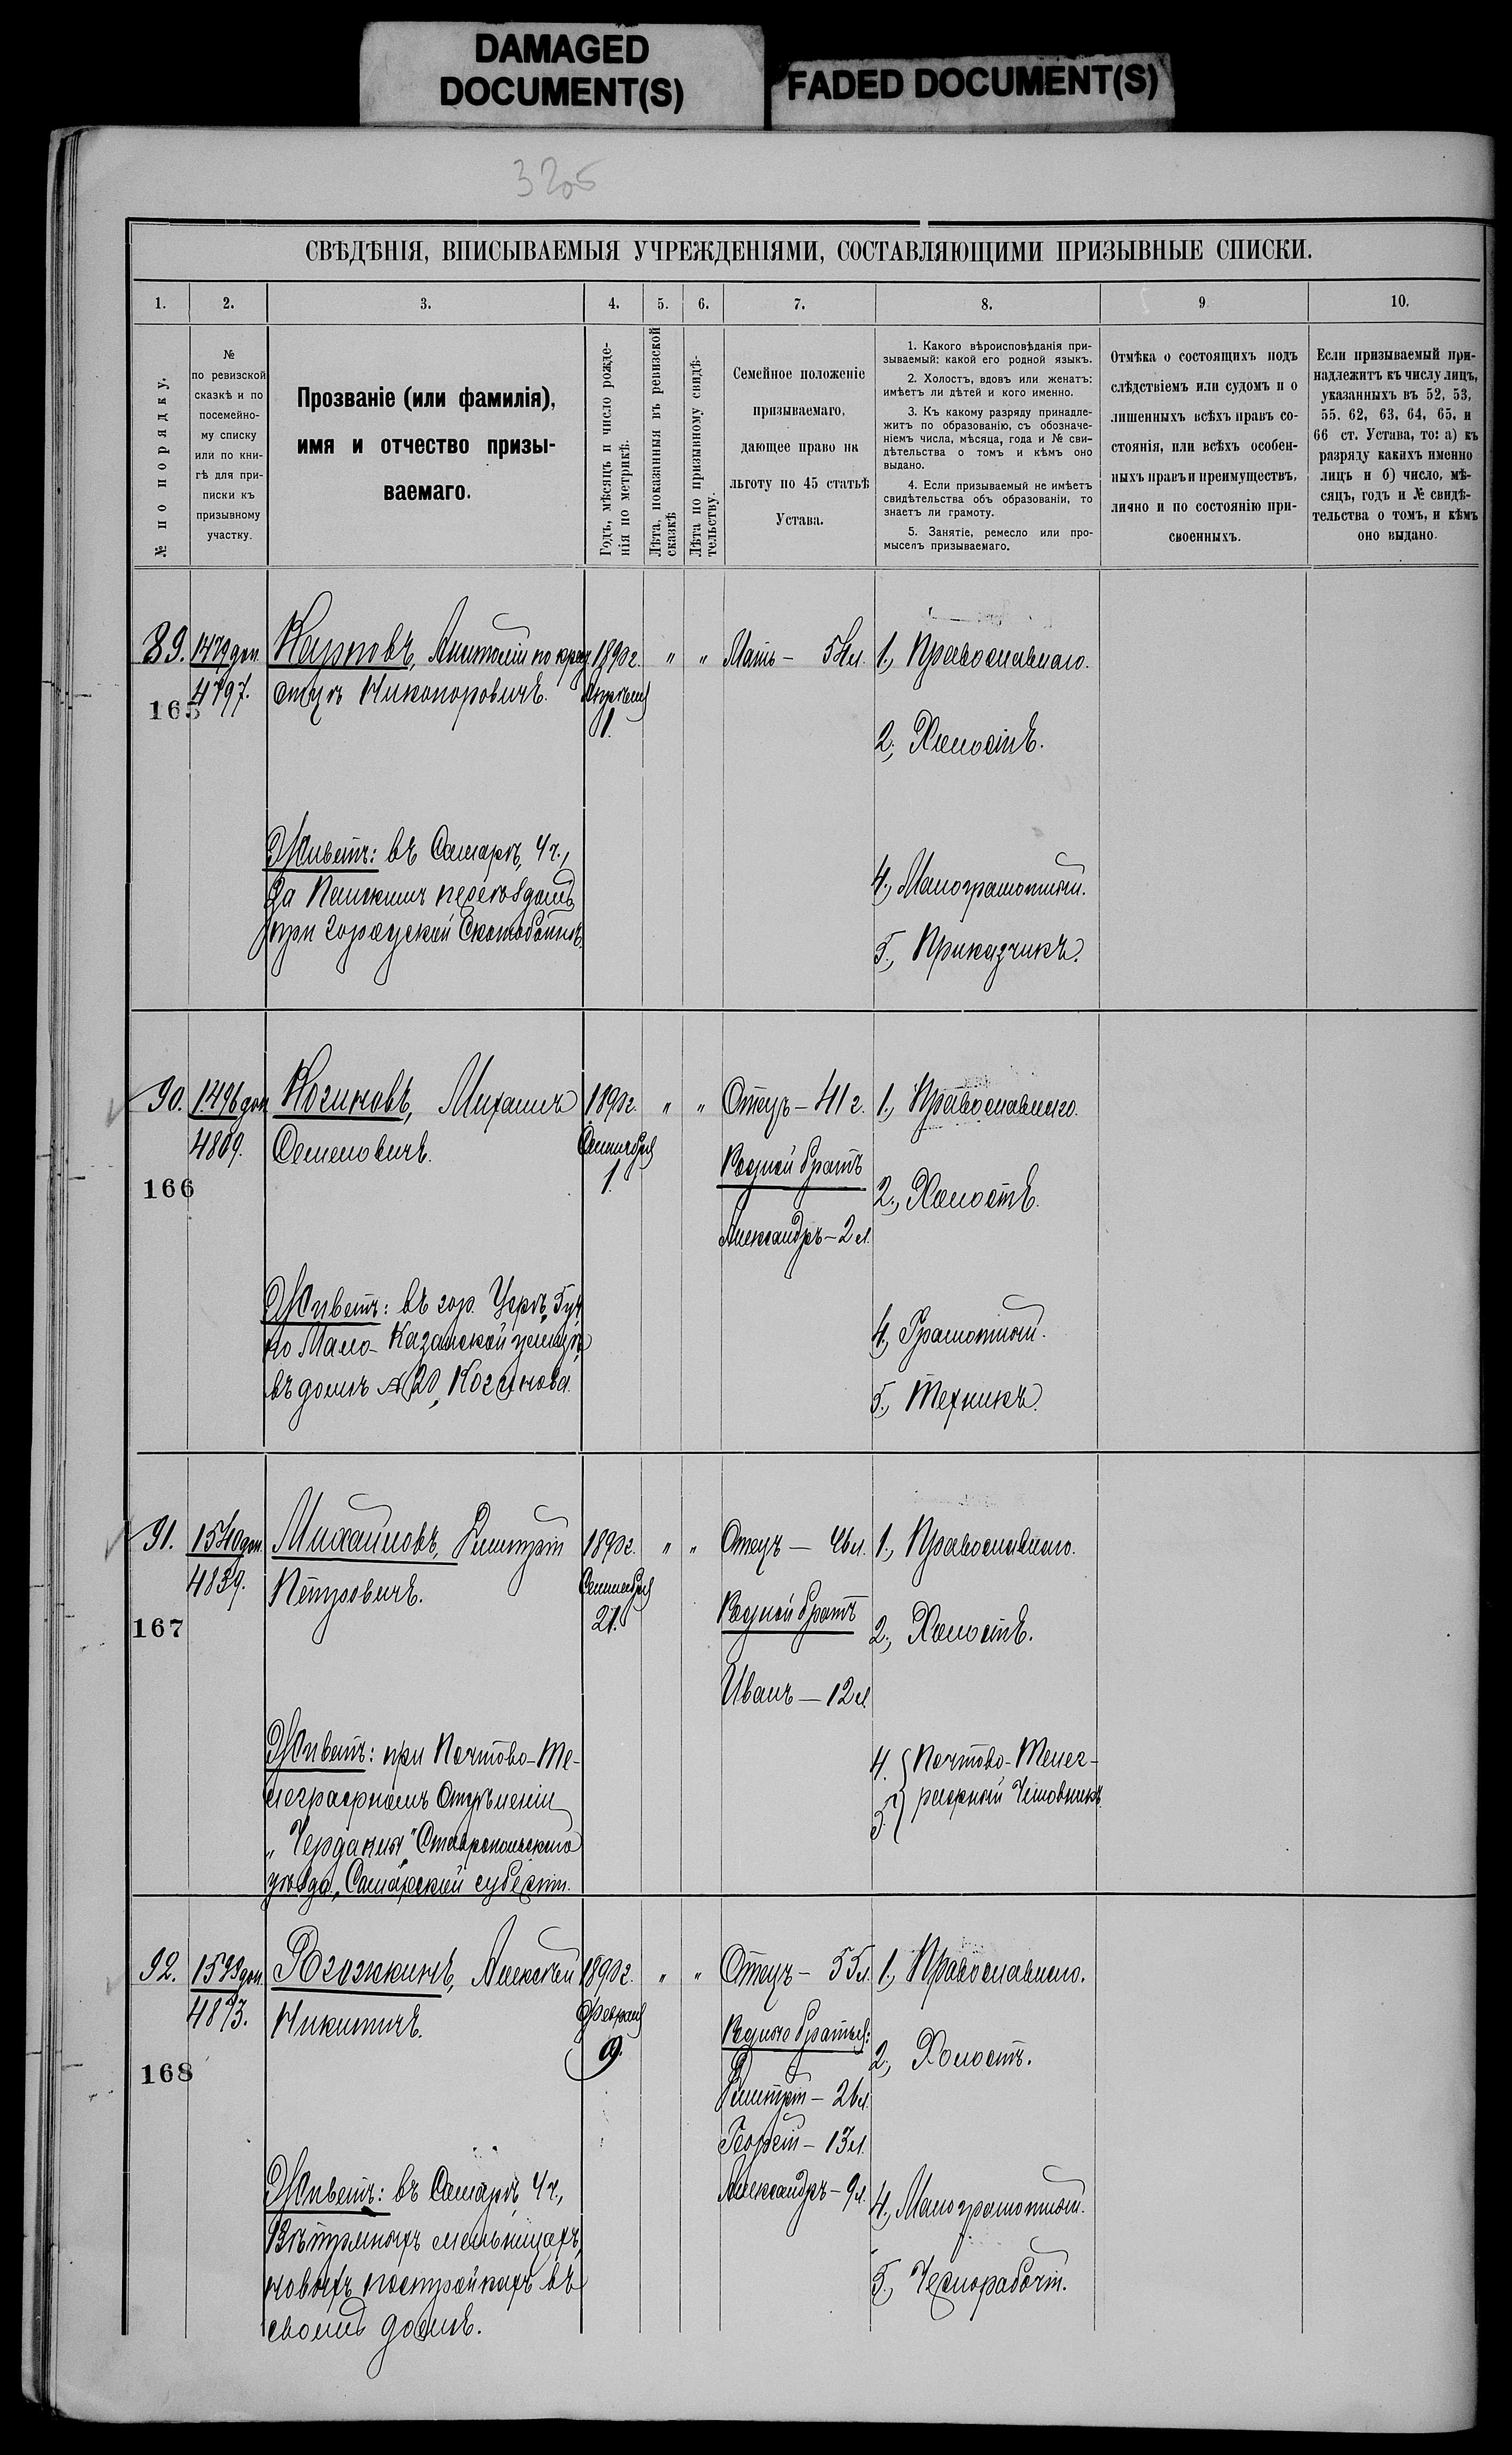 DAMAGED
DOCUMENT(S)
FADED DOCUMENT(S)
3205
СВѢДѢНІЯ, ВПИСЫВАЕМЫЯ УЧРЕЖДЕНІЯМИ, СОСТАВЛЯЮЩИМИ ПРИЗЫВНЫЕ СПИСКИ.
1. 2. 3. 4. 5. 6. 7. 8. 9 10.
№ по порядку.
№
по ревизской
сказкѣ и по
посемейно-
му списку
или по кни-
гѣ для при-
писки къ
призывному
участку.
Прозваніе (или фамилія),
имя и отчество призы-
ваемаго.
Годъ, мѣсяцъ и число рожде-
нія по метрикѣ.
Лѣта, показанныя въ ревизской
сказкѣ
Лѣта по призывному свидѣ-
тельству.
Семейное положеніе
призываемаго,
дающее право на
льготу по 45 статьѣ
Устава.
1. Какого вѣроисповѣданія при-
зываемый: какой его родной языкъ.
2. Холостъ, вдовъ или женатъ:
имѣетъ ли дѣтей и кого именно.
3. Къ какому разряду принадле-
житъ по образованію, съ обозначе-
ніемъ числа, мѣсяца, года и № сви-
дѣтельства о томъ и кѣмъ оно
выдано.
4. Если призываемый не имѣетъ
свидѣтельства объ образованіи, то
знаетъ ли грамоту.
5. Занятіе, ремесло или про-
мыселъ призываемаго.
Отмѣка о состоящихъ подъ
слѣдствіемъ или судомъ и о
лишенныхъ всѣхъ правъ со-
стоянія, или всѣхъ особен-
ныхъ правъ и преимуществъ,
лично и по состоянію при-
своенныхъ.
Если призываемый при-
надлежитъ къ числу лицъ,
указанныхъ въ 52, 53,
55. 62, 63, 64, 65, и
66 ст. Устава, то: а) къ
разряду какихъ именно
лицъ и б) число, мѣ-
сяцъ, годъ и № свидѣ-
тельства о томъ, и кѣмъ
оно выдано.
89. 1479 доп. Карповъ, Анатолій по крест 1890 г. " " Мать – 54 л. 1., Православнаго.
4797. отцу Никаноровичъ. Апрѣля
165
1.
2., Холостъ.
Живетъ: въ Самарѣ, 4 ч.,
За переѣздомъ
при городской Скотобойнѣ.
4., Малограмотный.
5., Приказчикъ.
90. 1496 доп. Когиновъ, Михаилъ 1890 г. " " Отецъ – 41 г. 1., Православнаго.
4809. Семеновичъ. Сентября
1.
Родной братъ
166
2., Холостъ.
Александръ – 2 л.
Живетъ: въ гор. Уфѣ, 5 уч
по Мало-Казанской улицѣ,
въ домѣ № 20, Когинова.
4., Грамотный.
5., Техникъ.
91. 1540 доп. Михайловъ, Дмитрій 1890 г. " " Отецъ – 46 л. 1., Православнаго.
4839. Петровичъ. Сентября
21.
Родной братъ
167
2., Холостъ.
Иванъ – 12 л
Живетъ: при Почтово-Те-
леграфномъ Отдѣленіи
"Чердаклы" Ставропольскаго
уѣзда, Самарской губерніи.
4. Почтово-Телег-
5. рафный Чиновникъ
92. 1593 доп. Рогожкинъ, Алексѣй 1890 г. " " Отецъ – 55 л. 1., Православнаго.
4873. Никитичъ. Февраля
9.
Родные братья:
168
2., Холостъ.
Дмитрій – 26 л.
Георгій – 13 л.
Александръ – 9 л.
Живетъ: въ Самарѣ, 4 ч.,
Вѣтряныхъ мельницахъ,
новыхъ постройкахъ въ
своемъ домѣ.
4., Малограмотный.
5., Чернорабочій.